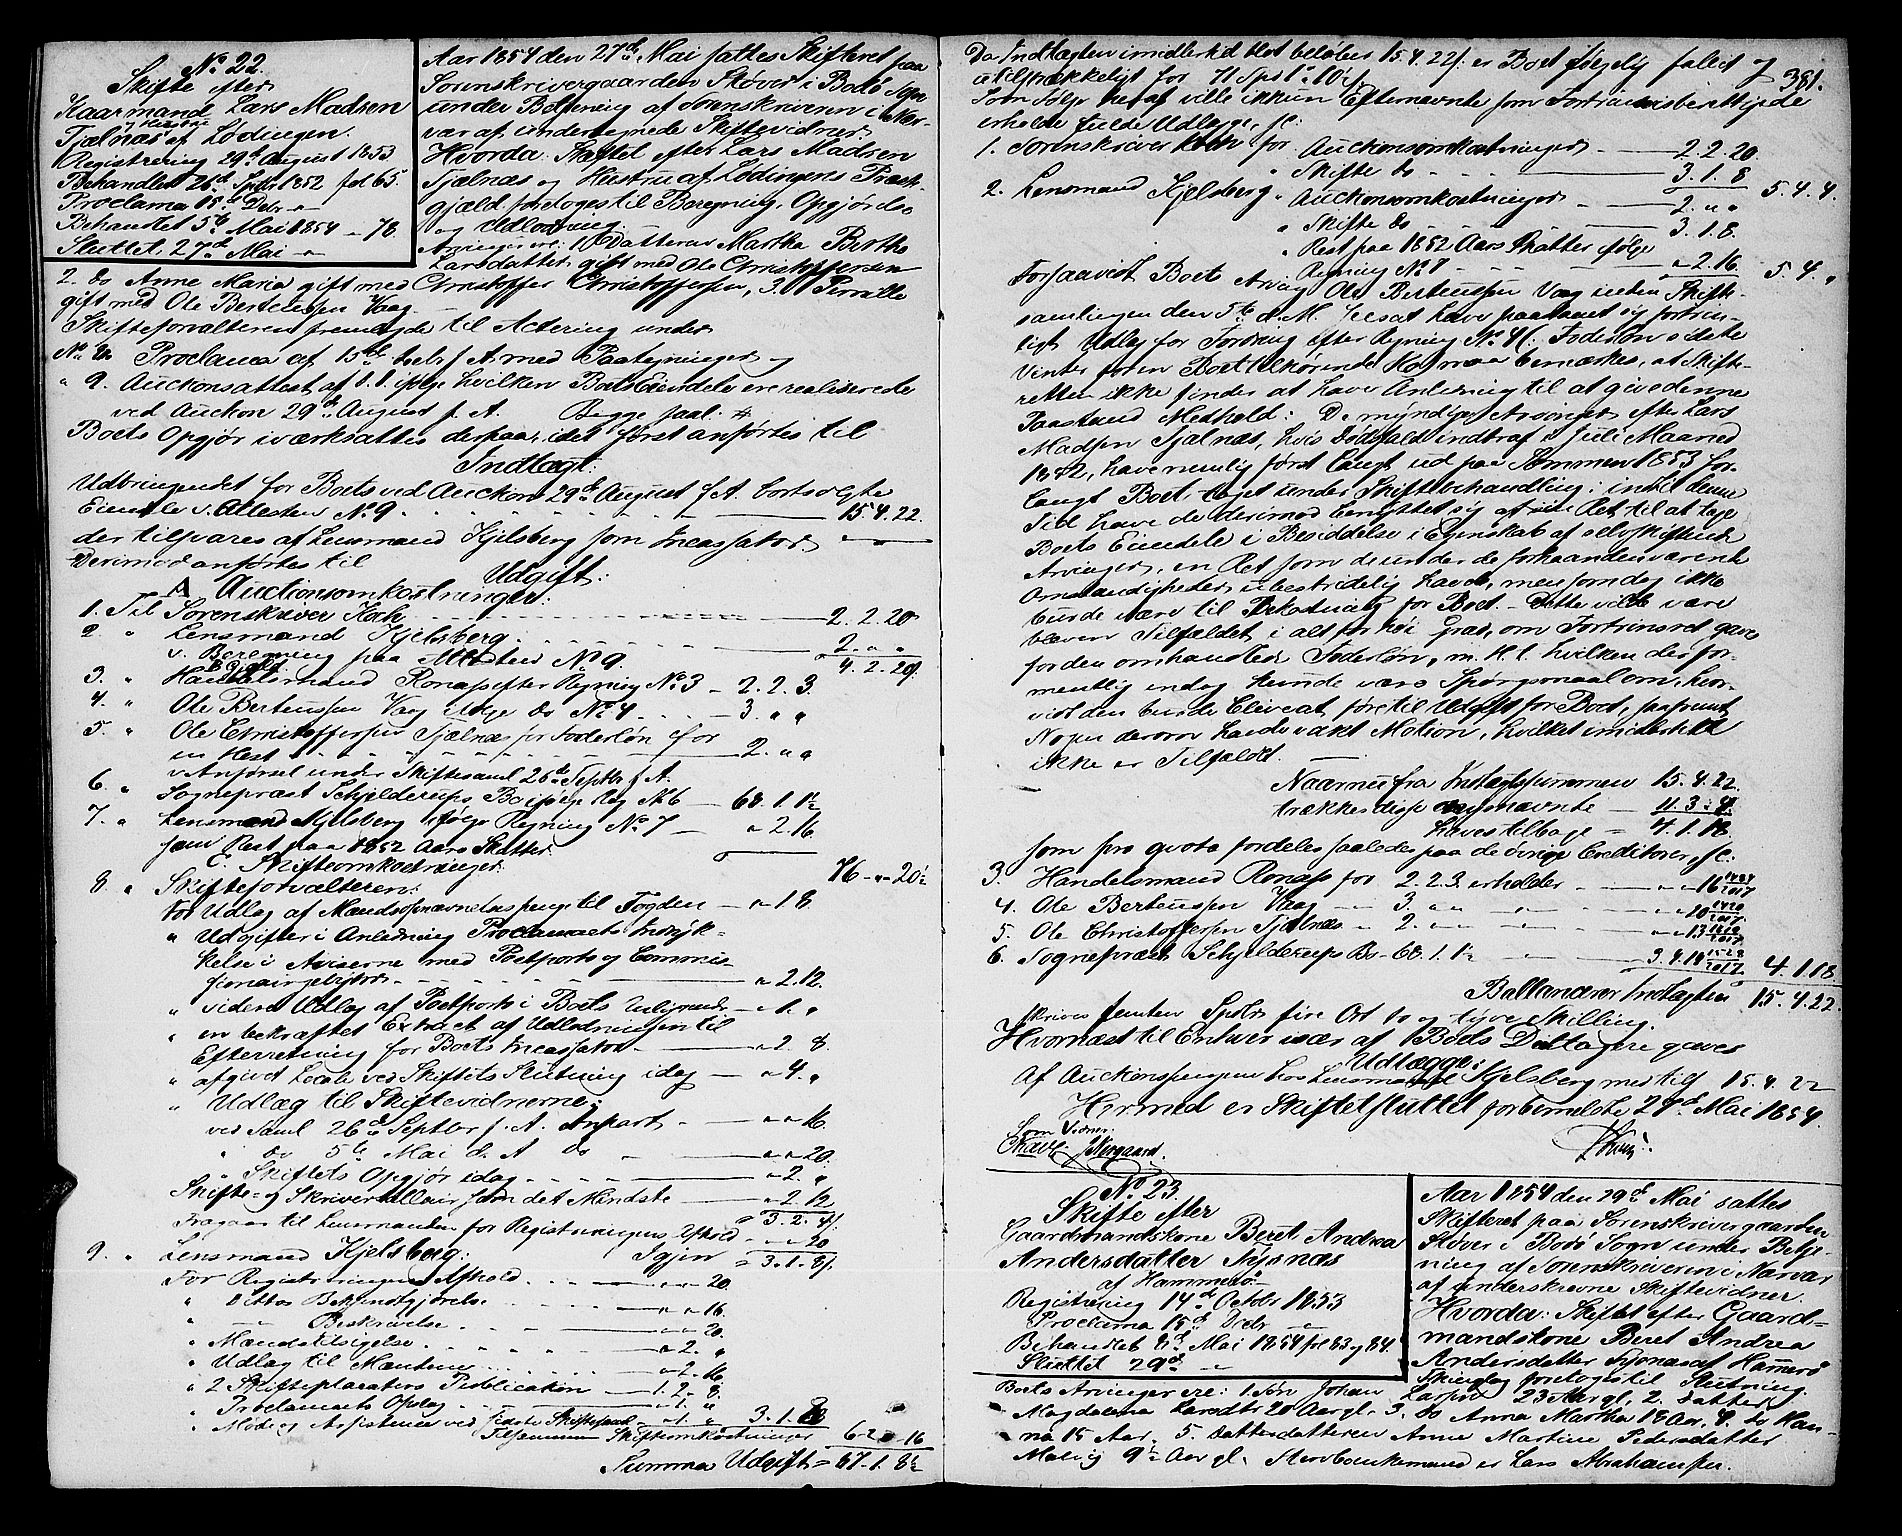 No 22.
Skifte efter
Kaarmand Lars Madsen
og Hustru
Tjælnæs af Lødingen.
Registrering 29de August 1853
Behandlet 26de Septbr 1852 fol 65.
Proclama 15de Debr "
Behandlet 5te Mai 1854 " 78.
Sluttet 27de Mai "
Aar 1854 den 27de Mai sattes Skifteret paa
Sorenskrivergaarden Støver i Bodø Sogn
under Betjening af Sorenskriveren i
af undertegnede Skiftevidner.
Hvorda: Skiftet efter Lars Madsen
Tjælnæs og Hustru af Lødingens Præste-
gjæld foretoges til Beregning, Opgjørelse
og Udlodning.
Arvinger ere: 1 Datteren Martha Birtha
Larsdatter gift med Ole Christoffersen
2. do Anne Maria gift med Christoffer Christoffersen, 3.
gift med Ole Berteussen Vaag.
Skifteforvalteren fremlagde til Actering under
No 8 Proclama af 15de Debr f. A. med Paategninger og
" 9. Auctionsattest af d. d. ifølge hvilken Boets Eiendele ere realiserede
ved Auction 29de August f. A. Begge saal. #
Boets Opgjør iværksattes derpaa, idet først anførtes til
Indtægt:
Udbringendet for Boets ved Auction 29de August f. A. bortsolgte
Eiendele v. Attesten No 9 15. 4. 22.
der tilsvares af Lensmand Kjelsberg som Incassator
Derimod anførtes til
Udgift:
A Auctionsomkostninger:
1. Til Sorenskriver Koch 2. 2. 20
2. " Lensmand Kjelsberg 2. " "
v. Beregning paa Attesten No 9. 4. 2. 20
B Gjæld
3. " Handelsmand Ronass efter Regning No 3 – 2. 2. 3.
4. " Ole Berteussen Vaag ifølge do No 4 3. " "
5. " Ole Christoffersen Tjælnæs for Foderløn for
en Hest 2. " "
v. Anførsel under Skiftesaml 26de Septbr f. A.
6 " Sognepræst Schjelderups Bo ifølge Reg No 6 – 68. 1. 1½
7. " Lensmand Kjelsberg ifølge Regning No 7 – " 2. 16
som Rest paa 1852 Aars Skatter
C. Skifteomkostninger: 76 – " – 20½
8 " Skifteforvalteren:
For Udlæg af Mandsopnævnelsespenge til Fogden – " 18
" Udgifter i Anledning Proclamaets Indryk-
kelse i Aviserne med Postporto og Commis-
sionairgebyhr " 2. 12.
" videre Udlæg af Postporto i Boets Anliggende – " 1. "
" en bekræftet Extract af Udlodningen til
Efterretning for Boets Incassator " 2. 8
" afgivet Locale ved Skiftets Slutning idag " 4. "
" Udlæg til Skiftevidnerne:
ved Saml 26de Septbr f. A. Anpart " " 16.
" do 5te Mai d. A do " " 20
" Skiftets Opgjør idag " 2. "
Skifte- og Skriversallair som det Mindste " 2. 12
" 3. 2. 4
Fragaar til Lensmanden for Registreringens Afhold " " 20
Igjen " 3. 1. 8
9. " Lensmand Kjelsberg:
For Registreringens Afhold " " 20.
" Dittos Bekjendtgjørelse " " 16.
" Beskrivelse " " 20.
" Mændstilsigelse " 2. "
" Udlæg til Mændene " 2. 16
" 2 Skifteplacaters Publication 1. 2. 8.
" Proclamaets Opslag " 1. "
" Møde og Assistence ved Skiftesaml " 1. " 3. 1. 8
Tilsammen Skifteomkostninger 6 2 16
Summa Udgift = 87. 1. 8½
381.
Da Indtægten imidlertid blot beløber 15. 4. 22 er Boet følgelig fallit og
utilstrækkeligt for 71 Spd 1 10½
Som Følge heraf ville ikkun Efternævnte som Fortrinsberettigede
erholde fulde Udlæg, sc:
1. Sorenskriver Koch for Auctionsomkostninger 2. 2. 20.
" Skifte do 3. 1. 8 5. 4. 4.
2. Lensmand Kjelsberg " Auctionsomkostninger 2. " "
" Skifte do 3. 1. 8.
" Rest paa 1852 Aars Skatter ifølge
Regning No 7 " 2. 16 5. 4. "
Forsaavidt Boets Arving Ole Berteussen Vaag under Skifte-
samlingen den 5te d. M. sees at have paastaaet sig fortrin-
ligt Udlæg for Fordring efter Regning No 4 (: Foderløn sidste
Vinter for en Boet tilhørende Hest maa bemærkes, at Skifte-
retten ikke finder at have Anledning til at give denne
Paastand Medhold: De myndige Arvinger efter Lars
Madsen Tjælnæs, hvis Dødsfald indtraf i Juli Maaned
1842, have nemlig først langt ud paa Sommeren 1853 for-
langt Boet taget under Skiftebehandling; indtil denne
Tid have de derimod benyttet sig af sin Ret til at tage
Boets Eiendele i Besiddelse i Egenskab af selvskiftende
Arvinger, en Ret som de under de forhaandenværende
Omstændigheder ubestridelig havde, men som dog ikke
burde være til Bekostning for Boet – Dette vilde være
bleven Tilfældet i alt for høi Grad, om Fortrinsret gaves
for den omhandlede Foderløn, m. H. t. hvilken der for-
mentlig endog kunde være Spørgsmaal om, hvor-
vidt den burde bleveet ført til Udgift for Boet, saafremt
Nogen derom havde vakt Motion, hvilket imidlertid
ikke er Tilfældet.
Naar nu fra Indtægtssummen 15. 4. 22.
trækkes disse ovennævnte 11. 3. 4.
haves tilbage 4. 1. 18.
som pro qvota fordeles saaledes paa de øvrige Creditorer, sc:
3. Handelsmand Ronass for 2. 2. 3. erholder " " 16
4. Ole Berteussen Vaag " 3. " " " " " 20
5. Ole Christoffersen Tjælnæs " 2. " " " " " 13
6. Sognepræst Schjelderups Bo – 68. 1. 1½ " 3. 4. 14 4. 1. 18
Ballancerer Indtægten 15. 4. 22.
skriver femten Spdlr fire Ort to og tyve Skilling.
Hvornæst til Enhver især af Boets Deltagere gaves
Udlægge:
Af Auctionspengene hos Lensmand Kjelsberg med tils 15. 4. 22
Hermed er Skiftet sluttet forbemeldte 27de Mai 1854.
Som Vidner:
No 23
Skifte efter
Gaardmandskone Beret Andrea
Andersdatter
af Hammerø.
Registrering 14de Octobr 1853
Proclama 15de Debr "
Behandlet 8de Mai 1854 fol 83 og 84.
Sluttet 29de "
Aar 1854 den 29de Mai sattes
Skifteret paa Sorenskrivergaarden
Støver i Bodø Sogn under Betje-
ning af Sorenskriveren i
af underskrevne Skiftevidner.
Hvorda: Skiftet efter Gaard-
mandskone Beret Andrea
Andersdatter af Hammerø
Skinglag foretoges til Slutning.
Boets Arvinger ere: 1. Søn Johan Larsen 23 Aar gl, 2. Datter
Magdalena Larsdtr 20 Aar gl. 3. do Anna Martha 18 Aar, 4. do Han-
na 15 Aar, 5. Datterdatteren Anne Martine Pedersdatter
9½ Aar gl. Sterboenkemand er Lars Abrahamsen.